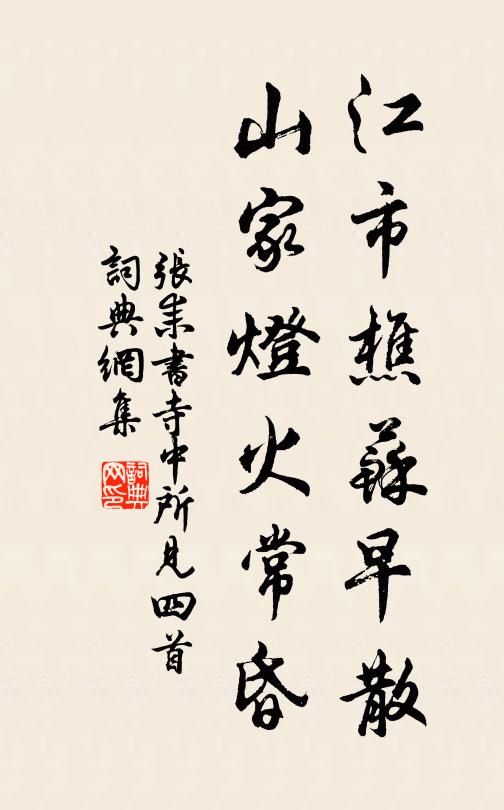 江市樵蘇早散
山家燈火常昏
張耒書寺中所見四首
詞典網集
詞典網印